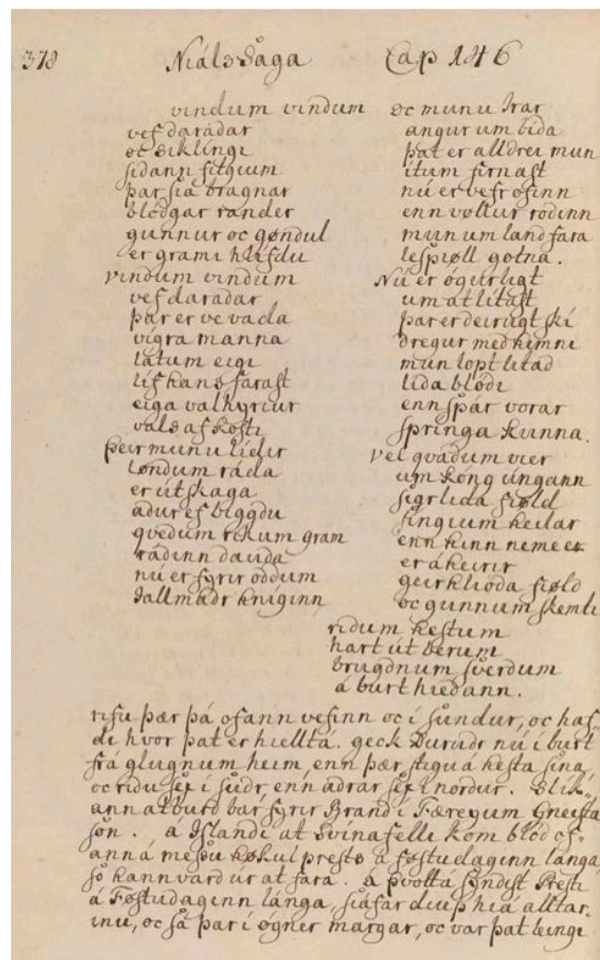 378 Niáls Saga Cap 146
vindum vindum
vef daradar
oc siklingi
sidann fitgium
þar siá bragnar
blódgar rander
gunnur oc gøndul
er grami hlífdu
vindum vindum
vef daradar
þar er ve vada
vigra manna
látum eigi
lif hans farast
eiga valkyriur
vals af kosti
Þeir munu lídir
løndum ráda
er útskaga
adur of biggdu
qvedum rikum gram
rádinn dauda
nú er fyrir oddum
Jallmadr hniginn
oc munu Irar
angur um bída
þat er alldrei mun
itum firnast
nú er vefr ofinn
enn vøllur rodinn
mun um land fara
lespiøll gotna.
Nú er ógurligt
um at litast
þar er dreirugt ský
dregur med himni
mun lopt litad
lida blódi
enn spár vorar
springa kunna.
Vel qvádum vier
um kóng úngann
sigrlióda fiøld
singium heilar
enn hinn neme er
er á heirir
geirhlióda fiøld
oc gunnum skemti
ridum hestum
hart út berum
brugdnum sverdum
á burt hiedann.
rifu þær þá ofann vefinn oc í sundur, oc haf-
di hvor þat er hiellt á. geck Durudr nú í burt
frá glugnum heim, enn þær stigu á hesta sína,
oc ridu sex í sudr, enn adrar sex í nordur. Slík-
ann atburd bar fyrir Brand í Færeyum Gneista
son. a Islandi at Svinafelli kom blód of-
ann á messu høkul prests á føstudaginn lánga,
so hann vard úr at fara. a Þvottá syndist Presti
á Føstudaginn lánga, siáfar diup hiá alltar-
inu, oc sá þar í ógner margar, oc var þat leingi